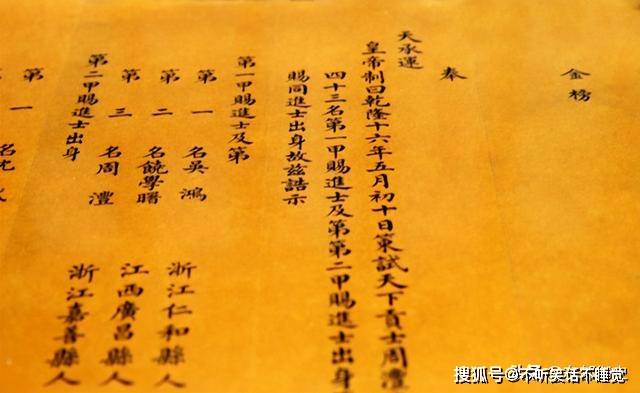 金榜
奉
天承運
皇帝制曰乾隆十六年五月初十日策試天下貢士周澧
四十三名第一甲賜進士及第第二甲賜進士出身
賜同進士出身故茲誥示
第一甲賜進士及第
第一名吳鴻 浙江仁和縣人
第二名饒學曙 江西廣昌縣人
第三名周澧 浙江嘉善縣人
第二甲賜進士出身
第一名沈
搜狐号@不听笑话不睡觉